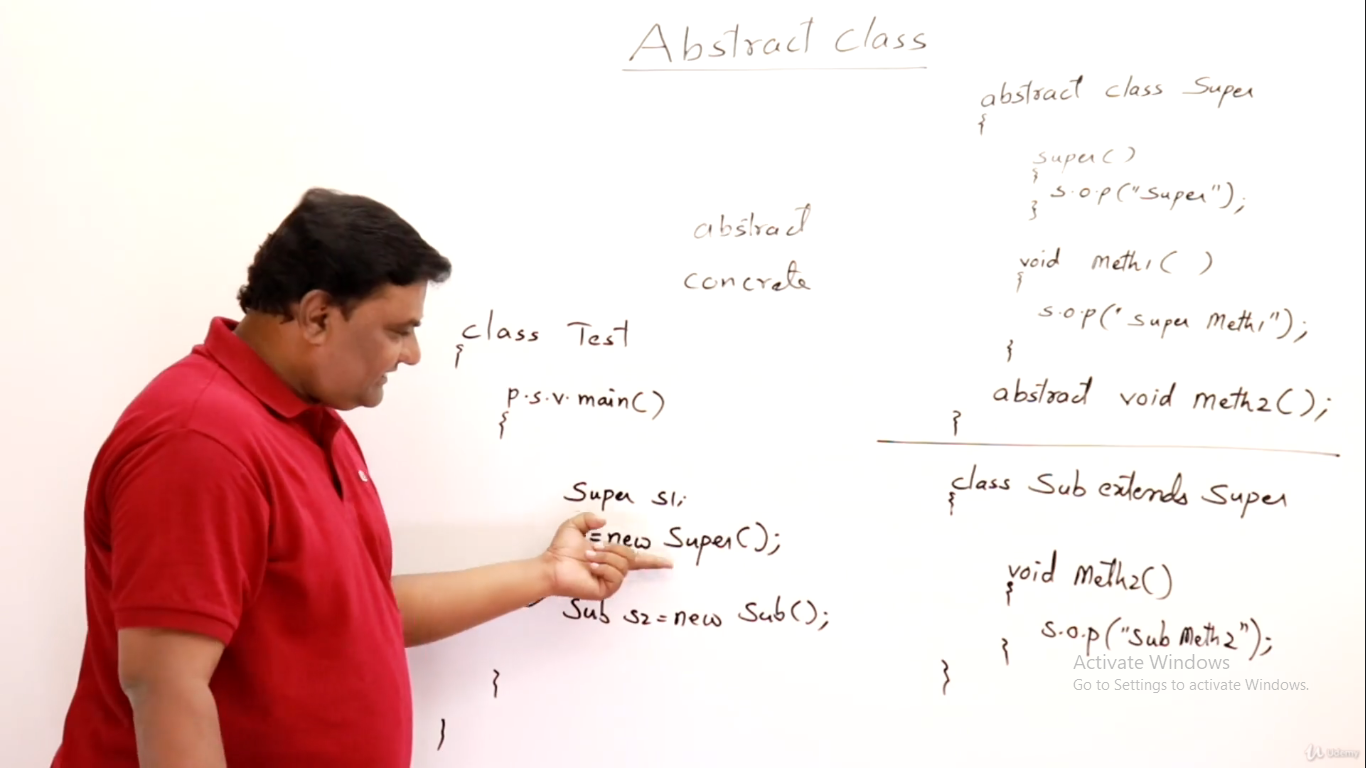 Abstract Class
abstract
concrete
class Test
{
p.s.v.main()
{
Super s1;
=new Super();
Sub s2=new Sub();
}
}
abstract class Super
{
super()
{
s.o.p("Super");
}
void meth1( )
{
s.o.p("Super Meth1");
}
abstract void meth2();
}
class Sub extends Super
{
void Meth2()
{
s.o.p("Sub Meth2");
}
}
Activate Windows
Go to Settings to activate Windows.
Udemy